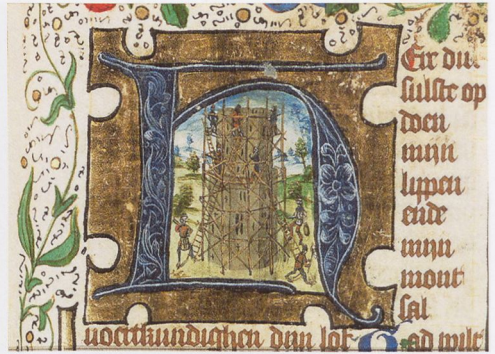 HEer du
sulste op
doen
mijn
lippen
ende
mijn
mont
sal
uoertkundighen dijn lof God wilt